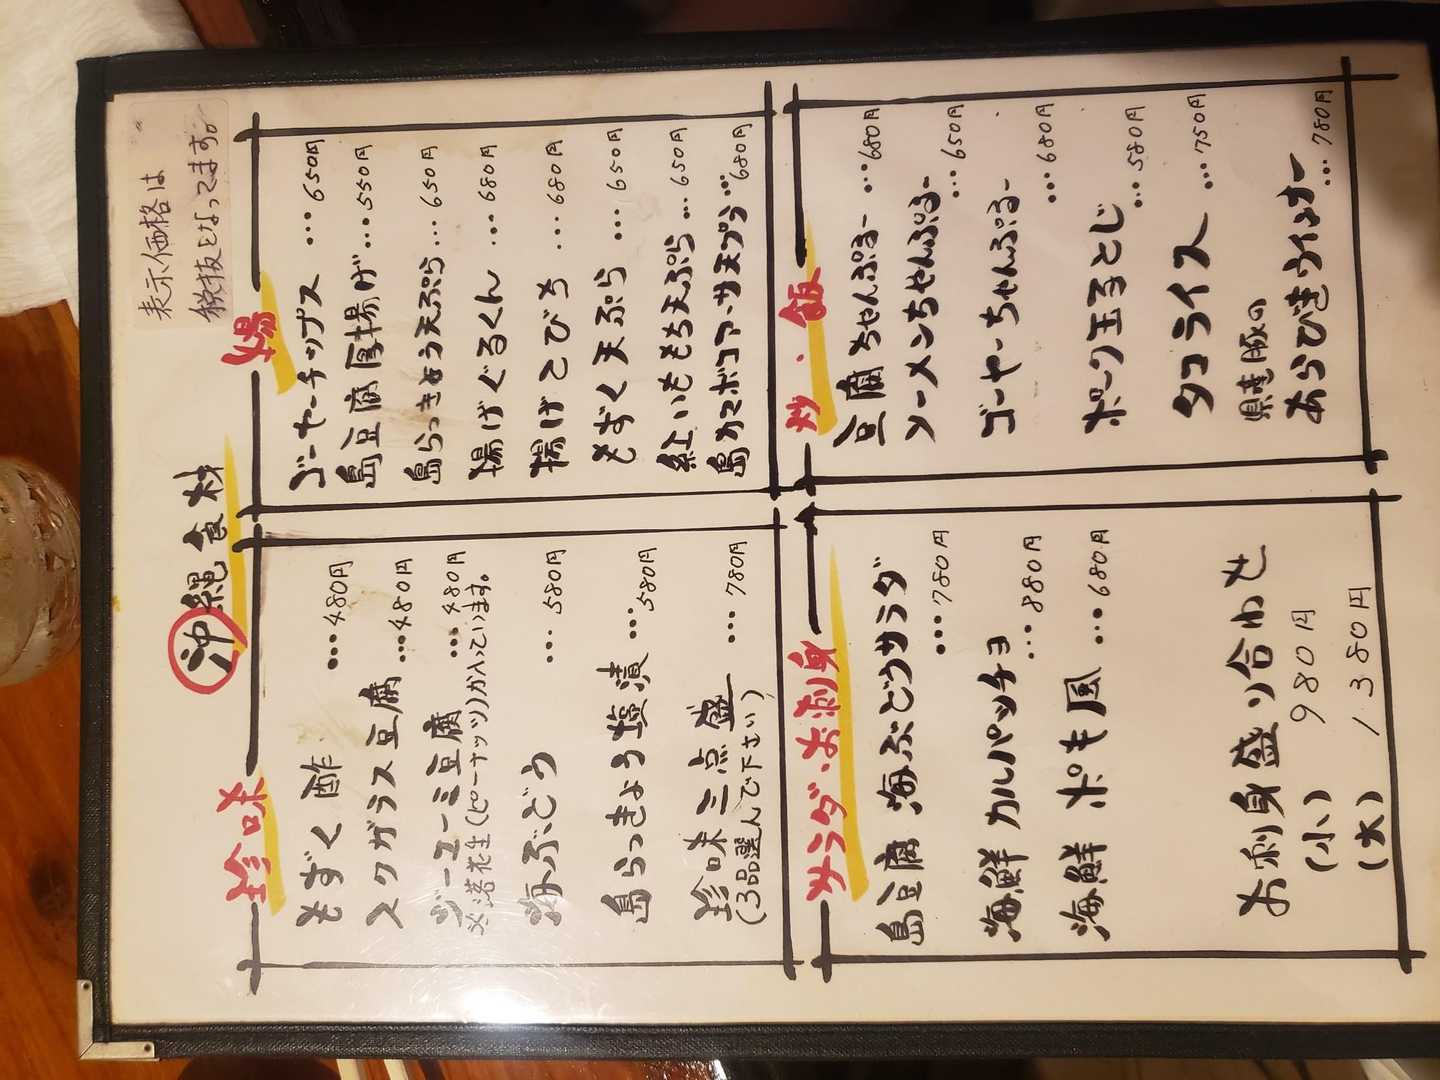 表示価格は
税抜となってます。
沖縄食材
珍味
もずく酢 ・・・480円
スクガラス豆腐 ・・・480円
ジーマミ豆腐 ・・・480円
※落花生(ピーナッツ)が入っています。
海ぶどう ・・・580円
島らっきょう塩漬 ・・・580円
珍味三点盛 ・・・780円
(3品選んで下さい)
揚
ゴーヤーチップス ・・・650円
島豆腐厚揚げ ・・・550円
島らっきょう天ぷら ・・・650円
揚げぐるくん ・・・680円
揚げとびち ・・・680円
もずく天ぷら ・・・650円
紅いももち天ぷら ・・・650円
島カマボコアーサ天プラ ・・・680円
サラダ・お刺身
島豆腐海ぶどうサラダ ・・・780円
海鮮カルパッチョ ・・・880円
海鮮ポキ風 ・・・680円
お刺身盛り合わせ
(小) 980円
(大) 1,380円
炒・飯
豆腐ちゃんぷるー ・・・680円
ソーメンちゃんぷるー ・・・650円
ゴーヤーちゃんぷるー ・・・680円
ポーク玉子とじ ・・・580円
タコライス ・・・750円
県産豚の
あらびきウィンナー ・・・780円